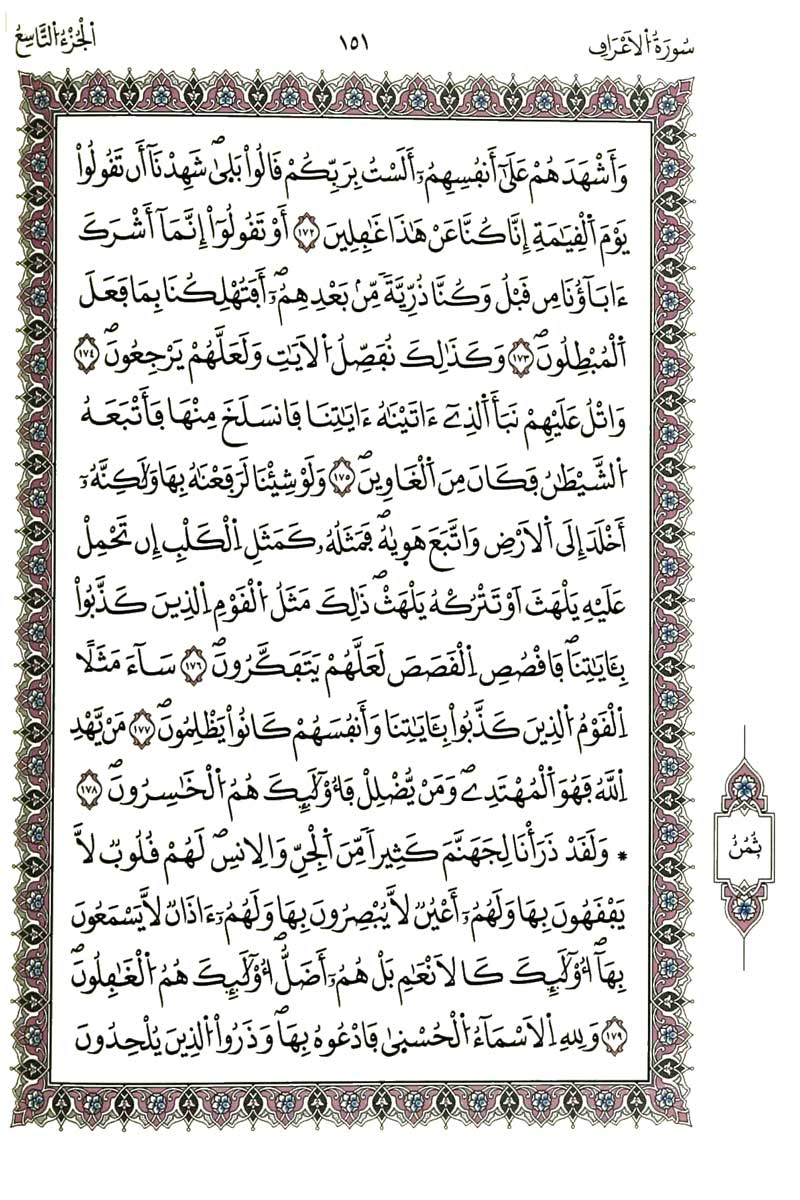 سُورَةُ الَاعْرَافِ
١٥١
اَلْجُزْءُ التَّاسِعُ
وَأَشْهَدَهُمْ عَلَىٰٓ أَنفُسِهِمُۥٓ أَلَسْتُ بِرَبِّكُمْ قَالُواْ بَلَىٰۖ شَهِدْنَآ أَن تَقُولُواْ
يَوْمَ اَ۬لْقِيَٰمَةِ إِنَّا كُنَّا عَنْ هَٰذَا غَٰفِلِينَ ١٧٢ أَوْ تَقُولُوٓاْ إِنَّمَآ أَشْرَكَ
ءَابَآؤُنَا مِن قَبْلُ وَكُنَّا ذُرِّيَّةٗ مِّنۢ بَعْدِهِمُۥٓۖ أَفَتُهْلِكُنَا بِمَا فَعَلَ
اَ۬لْمُبْطِلُونَۖ ١٧٣ وَكَذَٰلِكَ نُفَصِّلُ اُ۬لَايَٰتِ وَلَعَلَّهُمْ يَرْجِعُونَۖ ١٧٤
وَاتْلُ عَلَيْهِمْ نَبَأَ اَ۬لذِےٓ ءَاتَيْنَٰهُ ءَايَٰتِنَا فَانسَلَخَ مِنْهَا فَأَتْبَعَهُ
اُ۬لشَّيْطَٰنُ فَكَانَ مِنَ اَ۬لْغَاوِينَۖ ١٧٥ وَلَوْ شِئْنَا لَرَفَعْنَٰهُ بِهَا وَلَٰكِنَّهُۥٓ
أَخْلَدَ إِلَى اَ۬لَارْضِ وَاتَّبَعَ هَوٜيٰهُۖ فَمَثَلُهُۥ كَمَثَلِ اِ۬لْكَلْبِ إِن تَحْمِلْ
عَلَيْهِ يَلْهَثَ اَوْ تَتْرُكْهُ يَلْهَثْۖ ذَّٰلِكَ مَثَلُ اُ۬لْقَوْمِ اِ۬لذِينَ كَذَّبُواْ
بِـَٔايَٰتِنَاۖ فَاقْصُصِ اِ۬لْقَصَصَ لَعَلَّهُمْ يَتَفَكَّرُونَۖ ١٧٦ سَآءَ مَثَلًا
اِ۬لْقَوْمُ اُ۬لذِينَ كَذَّبُواْ بِـَٔايَٰتِنَا وَأَنفُسَهُمْ كَانُواْ يَظْلِمُونَۖ ١٧٧ مَنْ يَّهْدِ
اِ۬للَّهُ فَهُوَ اَ۬لْمُهْتَدِےۖ وَمَنْ يُّضْلِلْ فَأُوْلَٰٓئِكَ هُمُ اُ۬لْخَٰسِرُونَۖ ١٧٨
* وَلَقَدْ ذَرَأْنَا لِجَهَنَّمَ كَثِيراٗ مِّنَ اَ۬لْجِنِّ وَالِانسِۖ لَهُمْ قُلُوبٞ لَّا
يَفْقَهُونَ بِهَا وَلَهُمُۥٓ أَعْيُنٞ لَّا يُبْصِرُونَ بِهَا وَلَهُمُۥٓ ءَاذَانٞ لَّا يَسْمَعُونَ
بِهَآۖ أُوْلَٰٓئِكَ كَالَانْعَٰمِ بَلْ هُمُۥٓ أَضَلُّۖ أُوْلَٰٓئِكَ هُمُ اُ۬لْغَٰفِلُونَۖ
١٧٩ وَلِلهِ اِ۬لَاسْمَآءُ اُ۬لْحُسْنٜيٰ فَادْعُوهُ بِهَاۖ وَذَرُواْ اُ۬لذِينَ يُلْحِدُونَ
ثُمُنُ